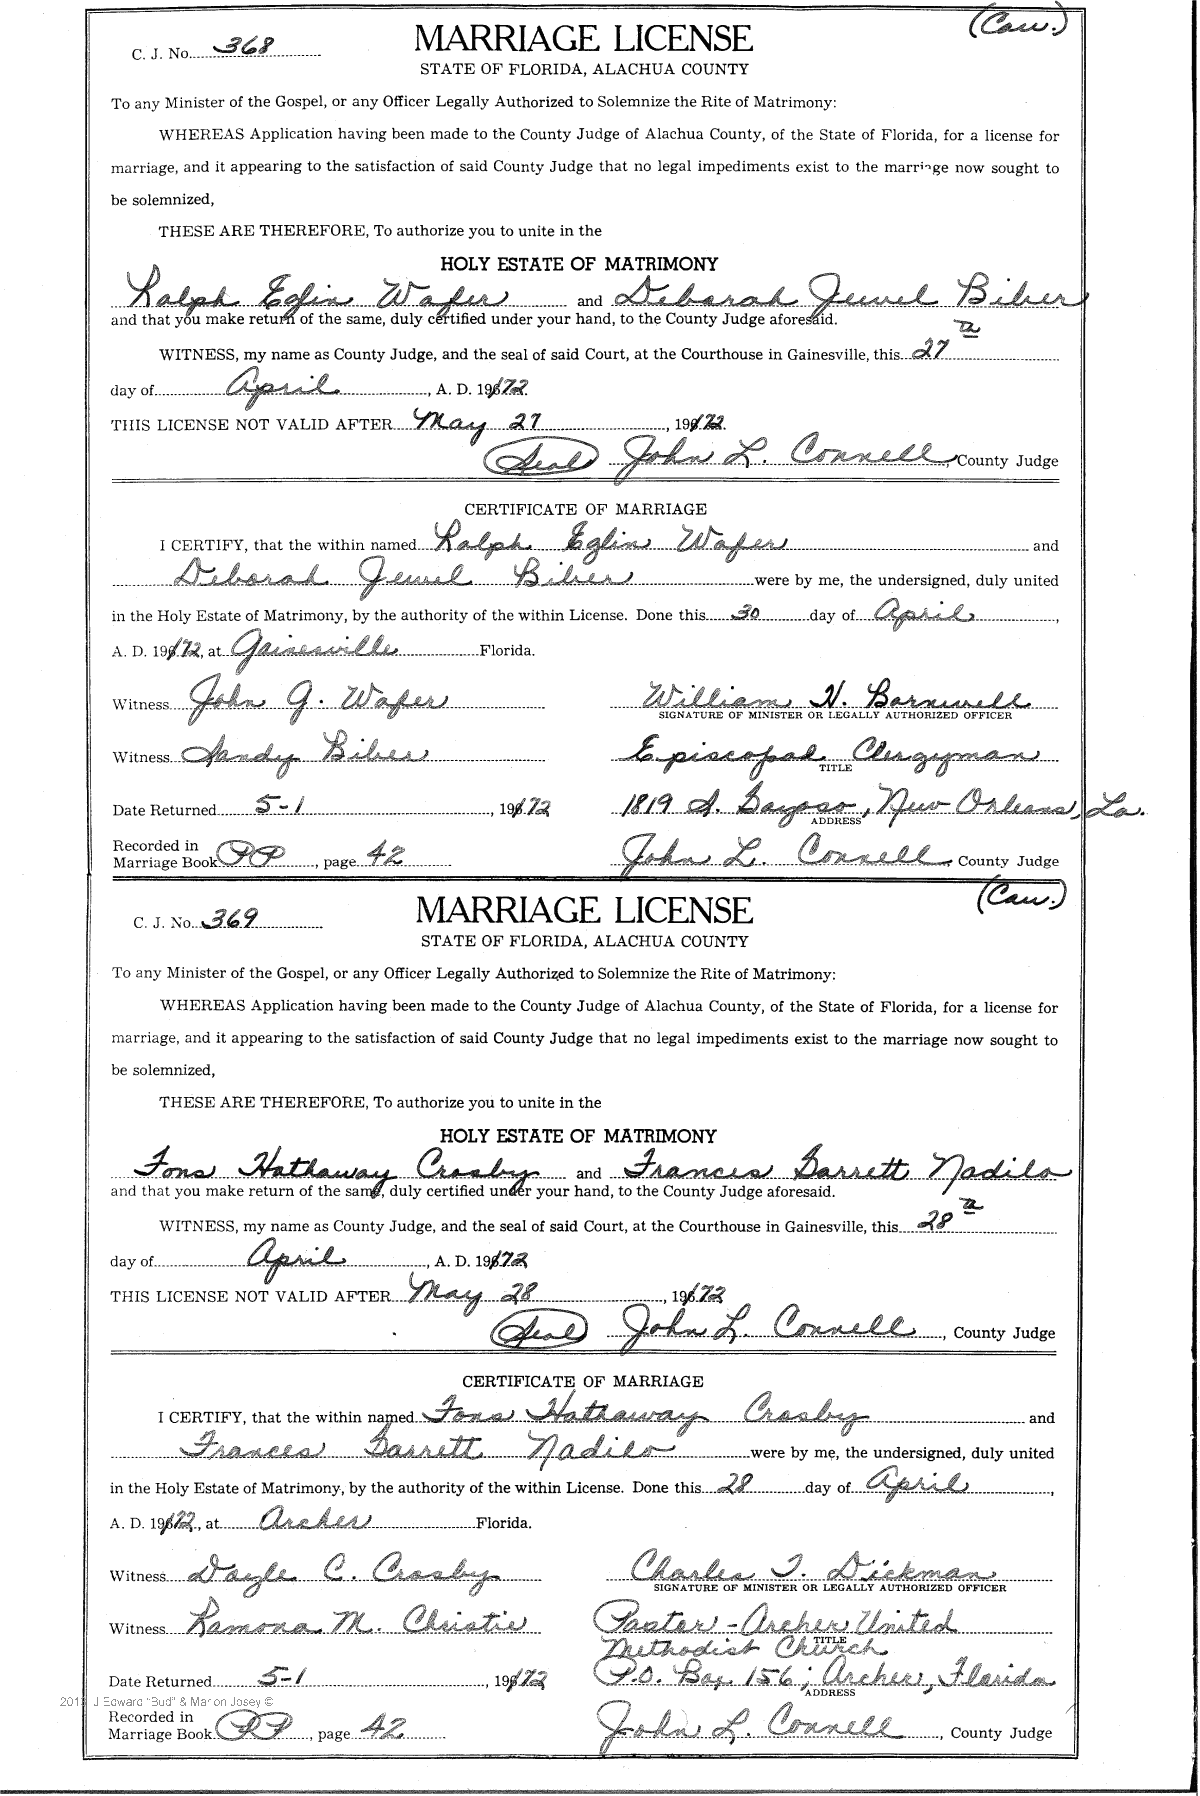 (Cau.)
C. J. No. 368 MARRIAGE LICENSE
STATE OF FLORIDA, ALACHUA COUNTY
To any Minister of the Gospel, or any Officer Legally Authorized to Solemnize the Rite of Matrimony:
WHEREAS Application having been made to the County Judge of Alachua County, of the State of Florida, for a license for
marriage, and it appearing to the satisfaction of said County Judge that no legal impediments exist to the marriage now sought to
be solemnized,
THESE ARE THEREFORE, To authorize you to unite in the
HOLY ESTATE OF MATRIMONY
Ralph Eglin Wafer and Deborah Jewel Biber
and that you make return of the same, duly certified under your hand, to the County Judge aforesaid.
WITNESS, my name as County Judge, and the seal of said Court, at the Courthouse in Gainesville, this 27th
day of April, A. D. 1972.
THIS LICENSE NOT VALID AFTER May 27, 1972.
(Seal) John L. Connell, County Judge
CERTIFICATE OF MARRIAGE
I CERTIFY, that the within named Ralph Eglin Wafer and
Deborah Jewel Biber were by me, the undersigned, duly united
in the Holy Estate of Matrimony, by the authority of the within License. Done this 30 day of April,
A. D. 1972, at Gainesville Florida.
Witness John G. Wafer William H. Barnwell
SIGNATURE OF MINISTER OR LEGALLY AUTHORIZED OFFICER
Witness Sandy Biber Episcopal Clergyman
TITLE
Date Returned 5-1, 1972 1819 S. Gayoso, New Orleans, La.
ADDRESS
Recorded in
Marriage Book PP, page 42 John L. Connell, County Judge
(Cau.)
C. J. No. 369 MARRIAGE LICENSE
STATE OF FLORIDA, ALACHUA COUNTY
To any Minister of the Gospel, or any Officer Legally Authorized to Solemnize the Rite of Matrimony:
WHEREAS Application having been made to the County Judge of Alachua County, of the State of Florida, for a license for
marriage, and it appearing to the satisfaction of said County Judge that no legal impediments exist to the marriage now sought to
be solemnized,
THESE ARE THEREFORE, To authorize you to unite in the
HOLY ESTATE OF MATRIMONY
Fons Hathaway Crosby and Frances Garrett Nadilo
and that you make return of the same, duly certified under your hand, to the County Judge aforesaid.
WITNESS, my name as County Judge, and the seal of said Court, at the Courthouse in Gainesville, this 28th
day of April, A. D. 1972
THIS LICENSE NOT VALID AFTER May 28, 1972
(Seal) John L. Connell, County Judge
CERTIFICATE OF MARRIAGE
I CERTIFY, that the within named Fons Hathaway Crosby and
Frances Garrett Nadilo were by me, the undersigned, duly united
in the Holy Estate of Matrimony, by the authority of the within License. Done this 28 day of April,
A. D. 1972, at Archer Florida.
Witness Dayle C. Crosby Charles T. Dickman
SIGNATURE OF MINISTER OR LEGALLY AUTHORIZED OFFICER
Witness Ramona M. Christie Pastor - Archer United
Methodist Church
TITLE
Date Returned 5-1, 1972 P.O. Box 156; Archer, Florida
ADDRESS
J Edward "Bud" & Marion Josey ©
Recorded in
Marriage Book PP, page 42 John L. Connell, County Judge